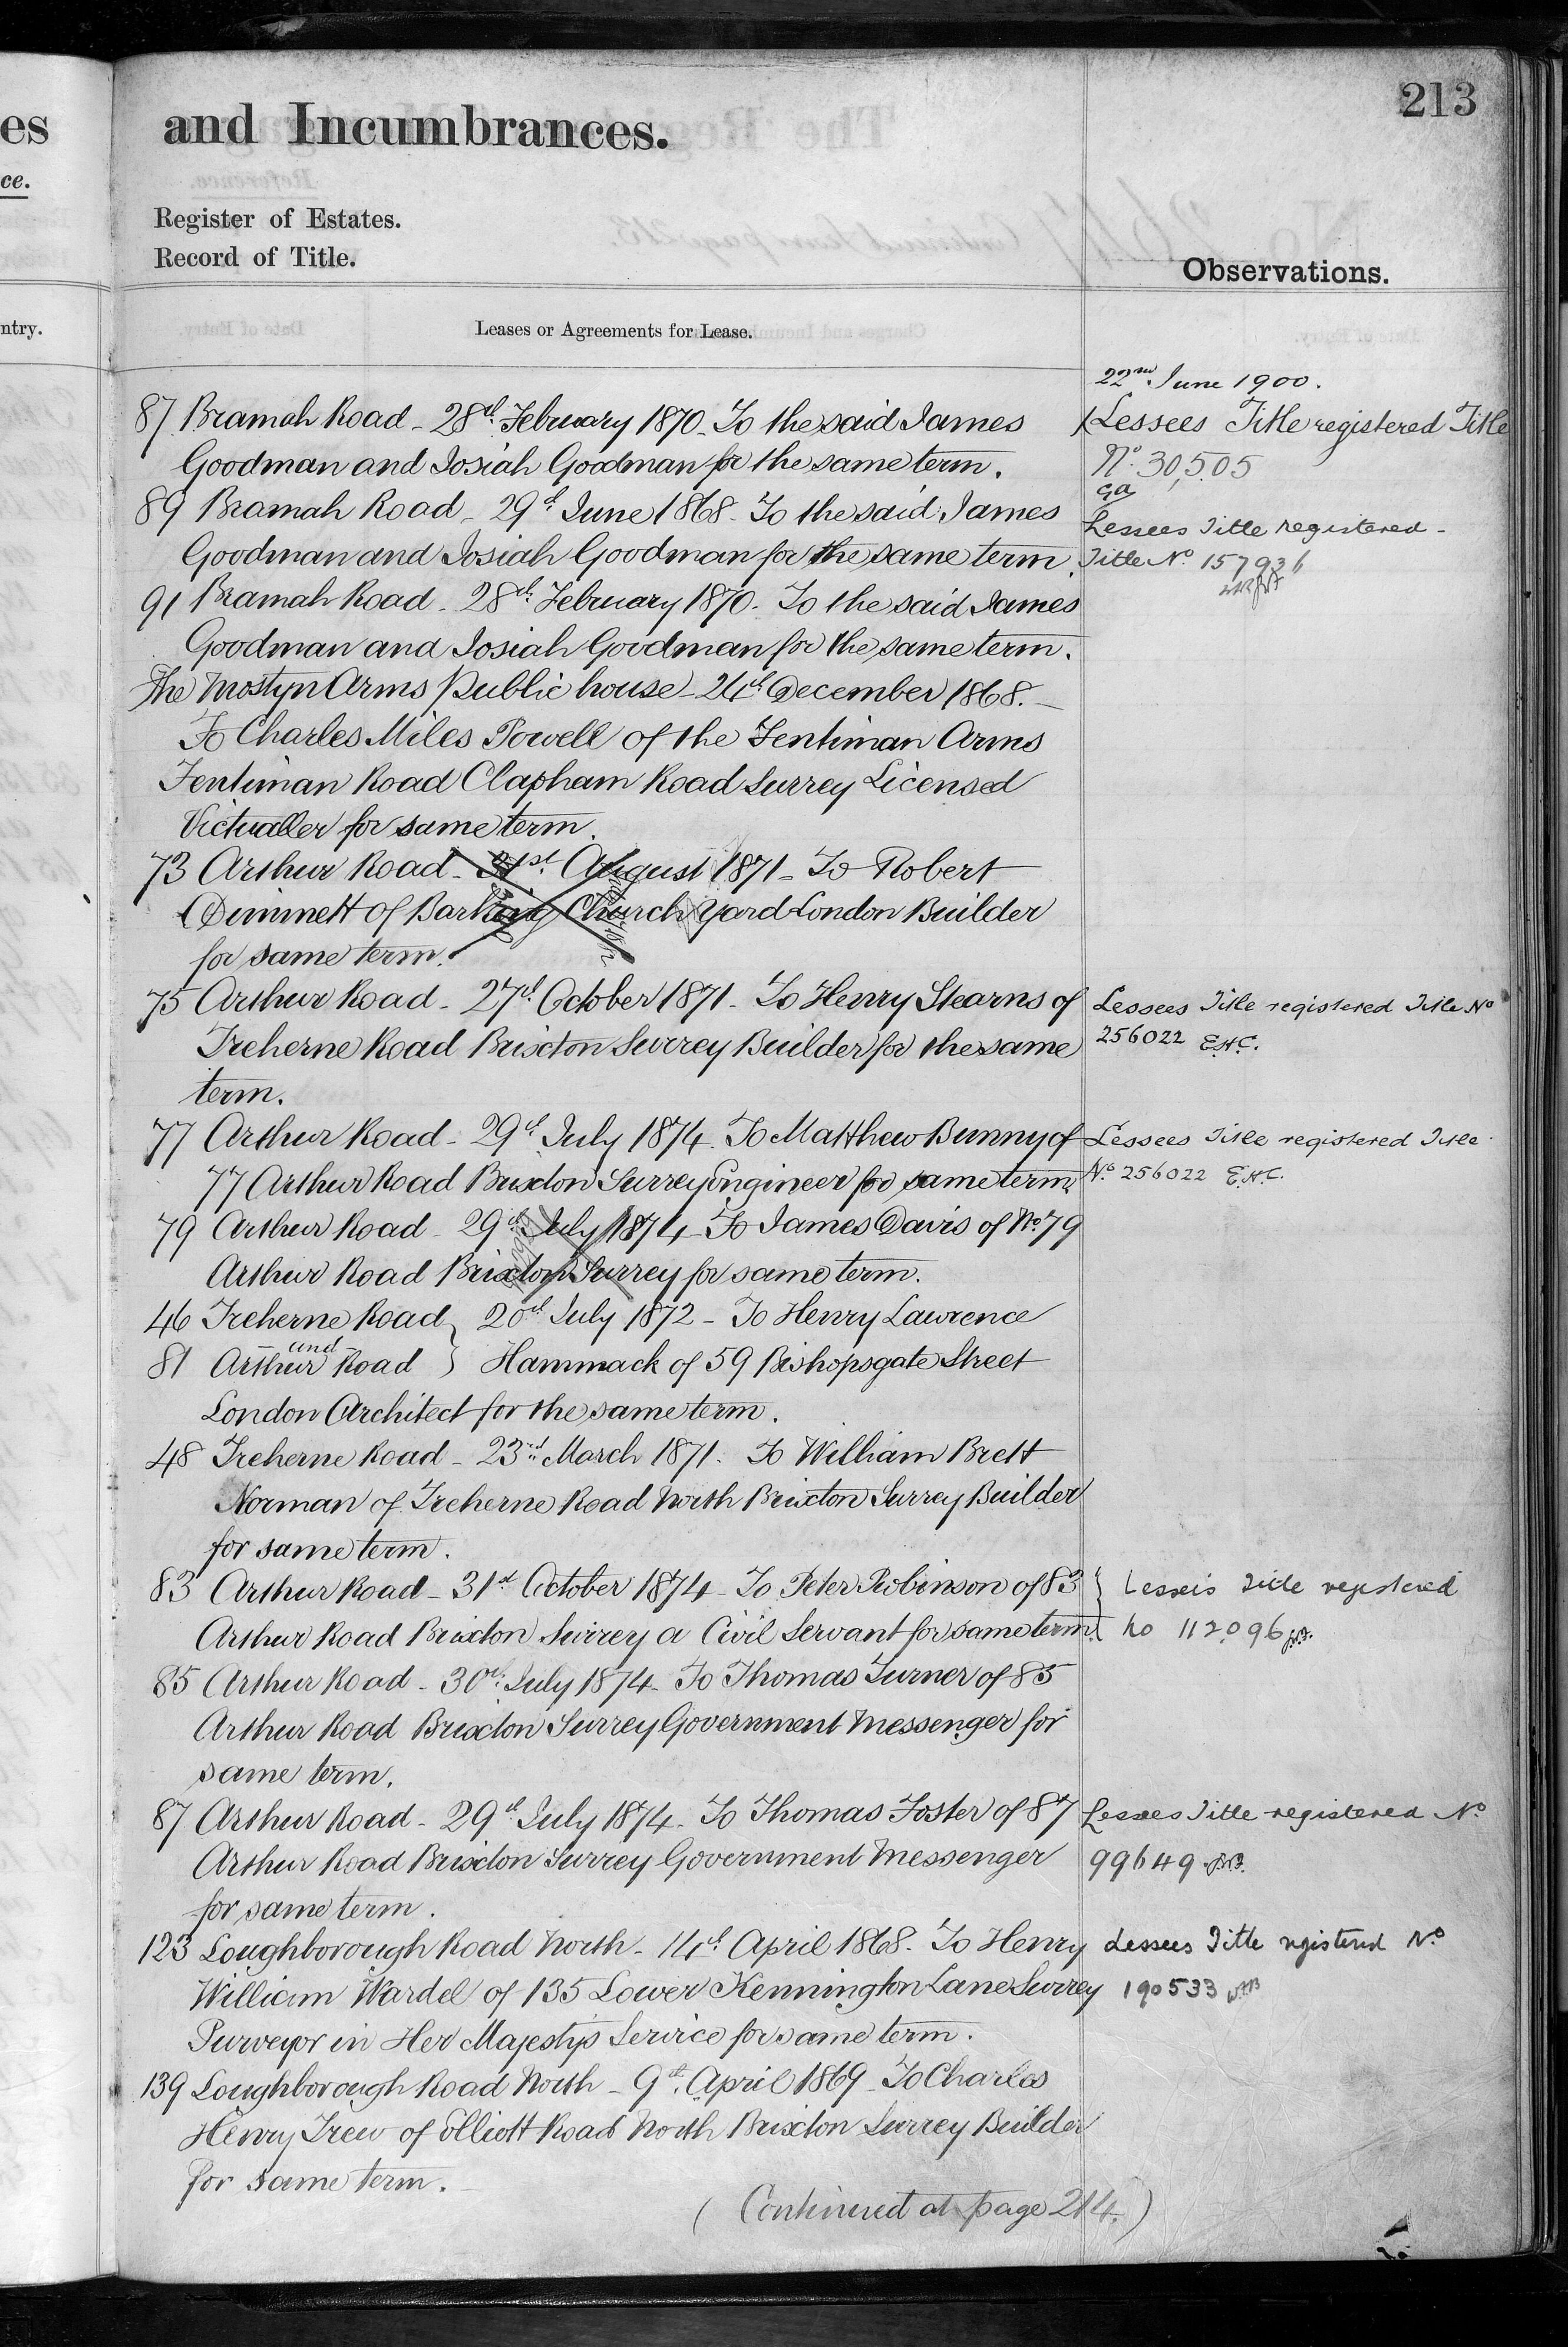 es
ce.
ntry.
213
and Incumbrances.
Register of Estates.
Record of Title.
Observations.
Leases or Agreements for Lease.
22nd June 1900.
87 Bramah Road - 28th February 1870 - To the said James
Goodman and Josiah Goodman for the same term.
Lessees Title registered Title
No. 30,505
89 Bramah Road - 29th June 1868 - To the said James
Goodman and Josiah Goodman for the same term.
Lessees Title registered -
Title No. 157936
91 Bramah Road - 28th February 1870 - To the said James
Goodman and Josiah Goodman for the same term.
The Mostyn Arms Public house - 24th December 1868. -
To Charles Miles Powell of the Fentiman Arms
Fentiman Road Clapham Road Surrey Licensed
Victualler for same term.
73 Arthur Road - 31st August 1871 - To Robert
Dimmett of Barking Church Yard London Builder
for same term.
75 Arthur Road - 27th October 1871 - To Henry Stearns of
Treherne Road Brixton Surrey Builder for the same
term.
Lessees Title registered Title No
256022 E.H.C.
77 Arthur Road - 29th July 1874 - To Matthew Bunny of
77 Arthur Road Brixton Surrey Engineer for same term.
Lessees Title registered Title
No. 256022 E.H.C.
79 Arthur Road - 29th July 1874 - To James Davis of No. 79
Arthur Road Brixton Surrey for same term.
46 Treherne Road } 20th July 1872 - To Henry Lawrence
and
81 Arthur Road } Hammack of 59 Bishopsgate Street
London Architect for the same term.
48 Treherne Road - 23rd March 1871. To William Brett
Norman of Treherne Road North Brixton Surrey Builder
for same term.
83 Arthur Road - 31st October 1874 - To Peter Robinson of 83
Arthur Road Brixton Surrey a Civil Servant for same term.
Lessees Title registered
No 112096
85 Arthur Road - 30th July 1874 - To Thomas Turner of 85
Arthur Road Brixton Surrey Government Messenger for
same term.
87 Arthur Road - 29th July 1874 - To Thomas Foster of 87
Arthur Road Brixton Surrey Government Messenger
for same term.
Lessees Title registered No
99649
123 Loughborough Road North - 14th April 1868 - To Henry
William Wardel of 135 Lower Kennington Lane Surrey
Purveyor in Her Majestys Service for same term.
Lessees Title registered No
190533
139 Loughborough Road North - 9th April 1869 - To Charles
Henry Trew of Elliott Road North Brixton Surrey Builder
for same term.
(Continued at page 214.)